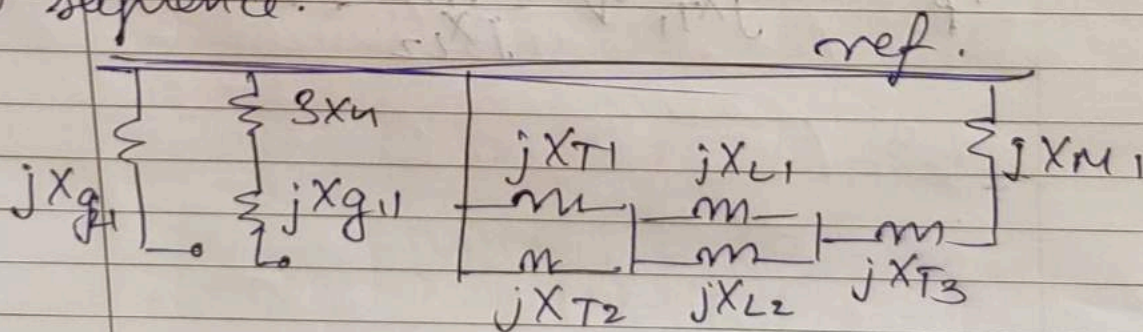 sequence.
ref.
3Xn
jXT1 jXL1
jXM1
jXg1
jXT2 jXL2 jXT3